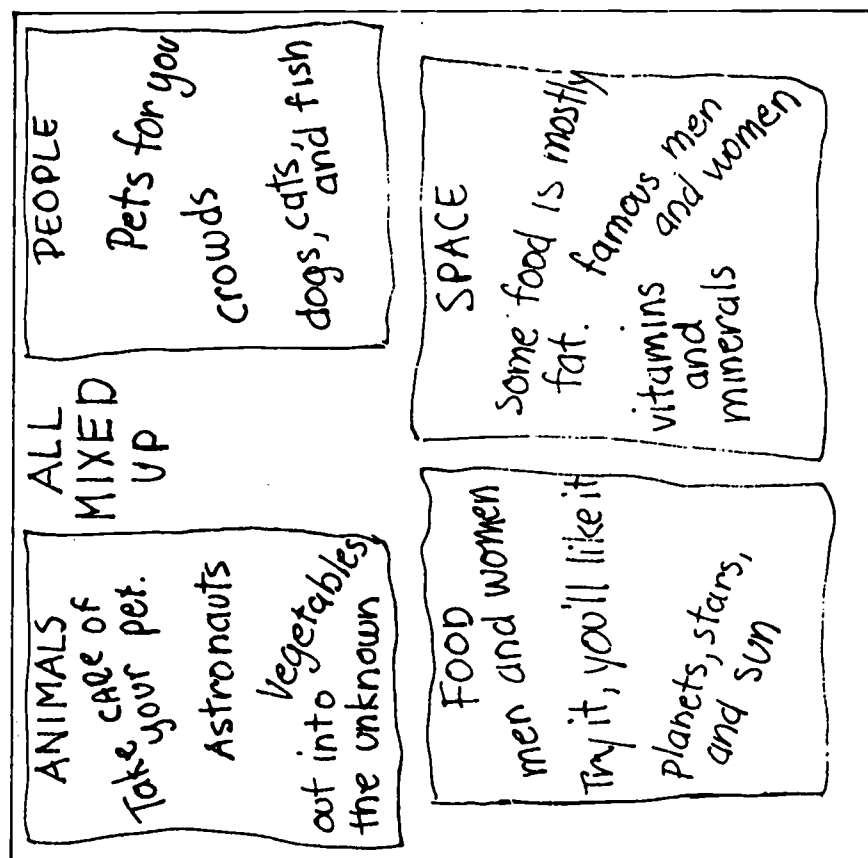 ALL
MIXED
UP
ANIMALS
Take CARE of
your pet.
Astronauts
Vegetables
out into
the unknown
PEOPLE
Pets for you
crowds
dogs, cats,
and fish
FOOD
men and women
Try it, you'll like it
Planets, stars,
and sun
SPACE
Some food is mostly
fat.
famous men
and women
vitamins
and
minerals